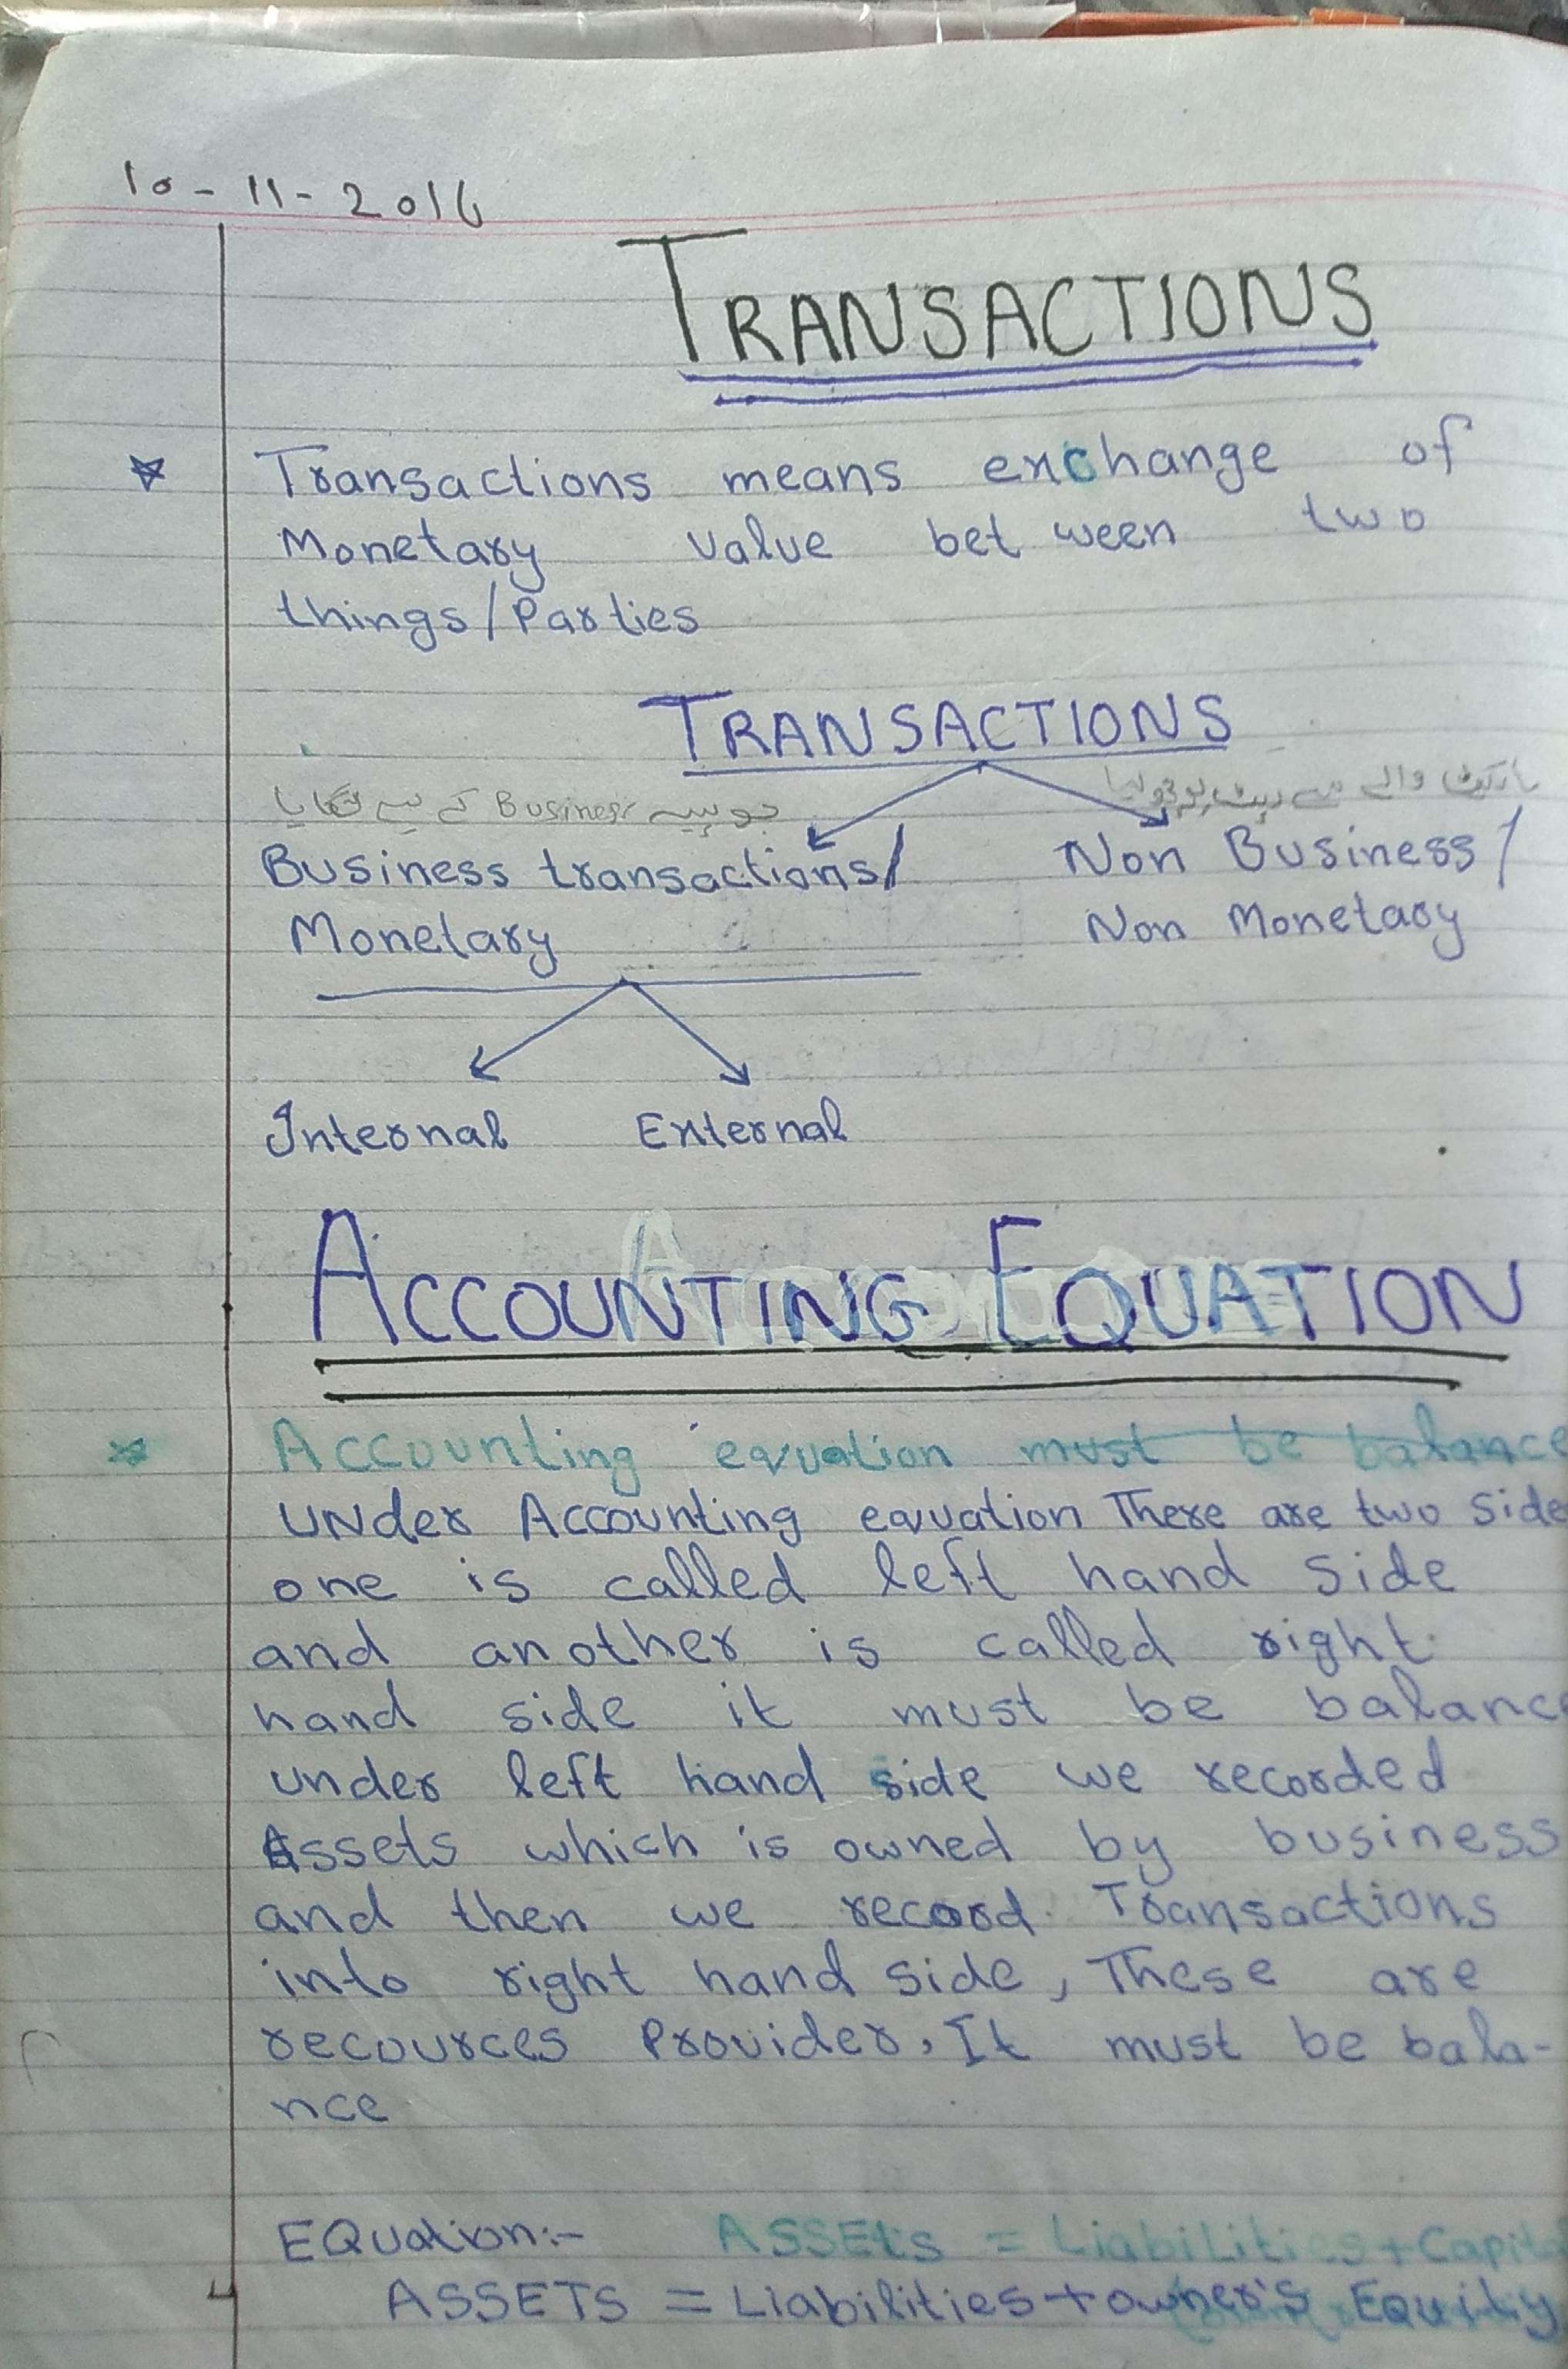 10-11-2016
TRANSACTIONS
Transactions means exchange of
Monetary value bet ween two
things/Parties
TRANSACTIONS
جو پیسے Business کے لیے لگایا
Business transactions/
Monetary
Non Business/
Non Monetary
Internal External
ACCOUNTING EQUATION
Accounting equation must be balance
UNder Accounting equation There are two side
one is called left hand side
and another is called right
hand side it must be balance
under left hand side we recorded
Assets which is owned by business
and then we record Transactions
into right hand side, These are
recources Provider, It must be bala-
nce
EQuation:- ASSEts = Liabilities+Capit
ASSETS = Liabilities+owner's Equity